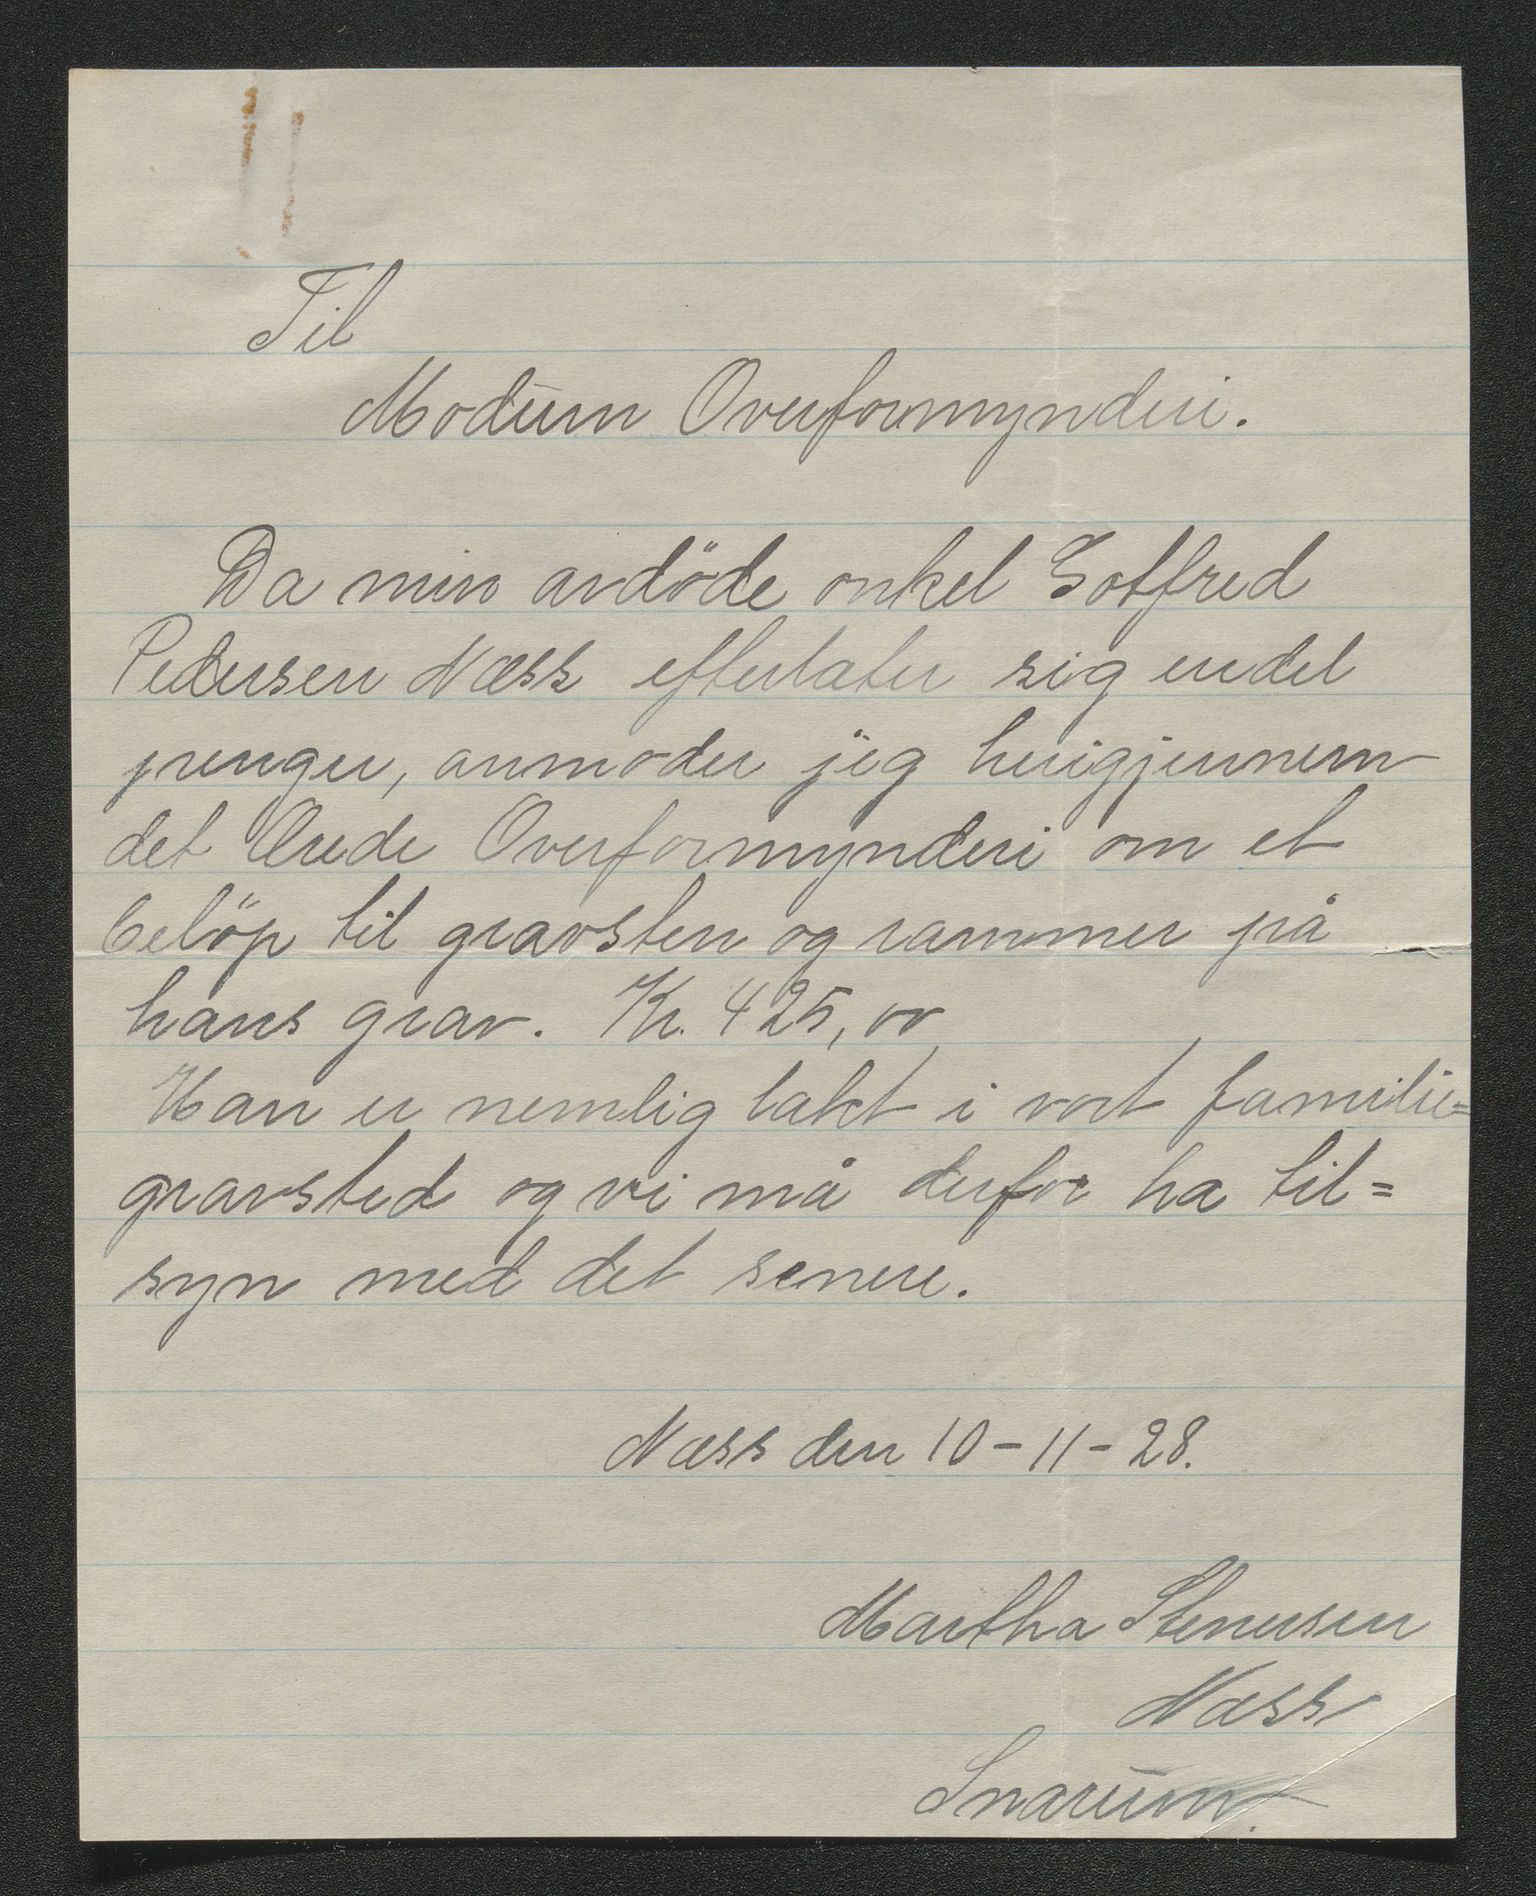 Til
Modum Overformynderi.
Da min avdöde onkel Gotfred
Pedersen Næss efterlater sig endel
penger, anmoder jeg herigjennem
det Ærede Overformynderi om et
belöp til gravsten og rammer på
hans grav. Kr. 425,00
Han er nemlig lakt i vort familie=
gravsted og vi må derfor ha til=
syn med det senere.
Næss den 10-11-28.
Martha Stenersen
Næss
Snarum.